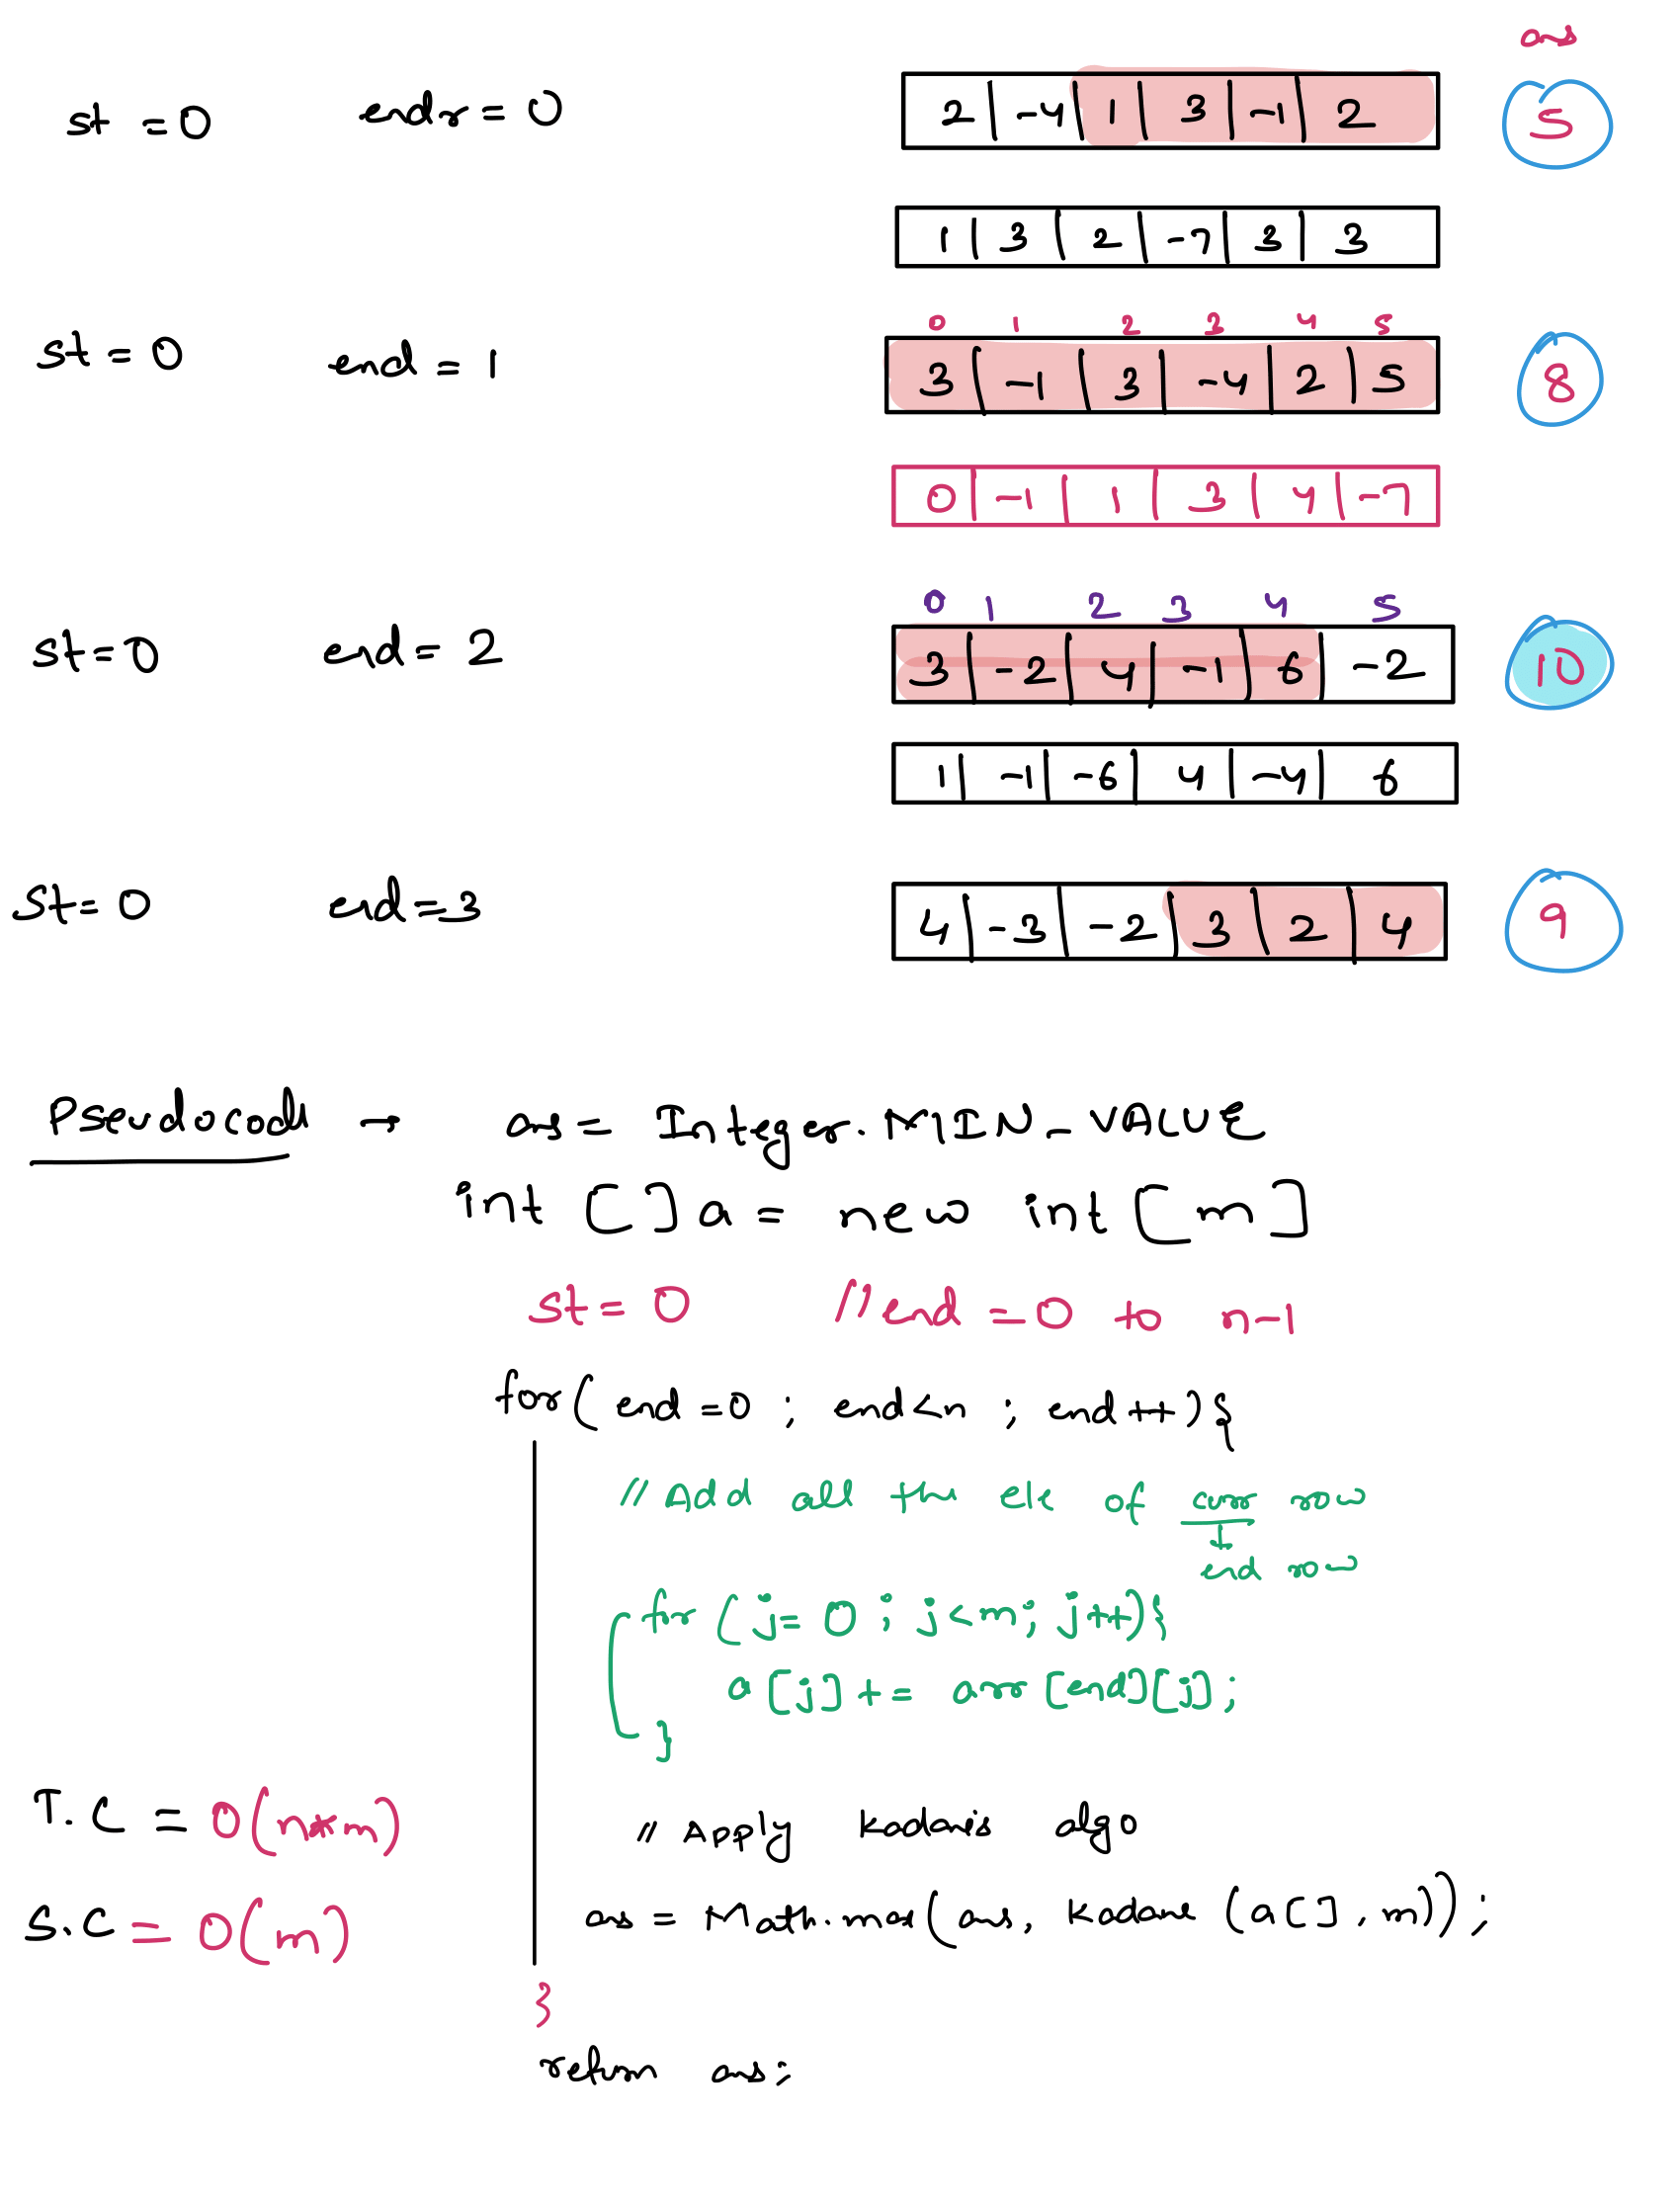 ans
st = 0 endr = 0 2 | -4 | 1 | 3 | -1 | 2 5
1 | 3 | 2 | -7 | 3 | 3
0 1 2 3 4 5
st = 0 end = 1 3 | -1 | 3 | -4 | 2 | 5 8
0 | -1 | 1 | 3 | 4 | -7
0 1 2 3 4 5
st = 0 end = 2 3 | -2 | 4 | -1 | 6 | -2 10
1 | -1 | -6 | 4 | -4 | 6
St = 0 end = 3 4 | -3 | -2 | 3 | 2 | 4 9
Pseudocode → ans = Integer.MIN_VALUE
int [ ] a = new int [m]
st = 0 // end = 0 to n-1
for ( end = 0 ; end < n ; end ++ ) {
// Add all the ele of curr row
↓
end row
for ( j = 0 ; j < m ; j++ ) {
a [j] += arr [end][j] ;
}
T.C = O(n*m)
// Apply kadanis algo
S.C = O(m)
ans = Math.max(ans, kadane (a[], m)) ;
}
return ans;